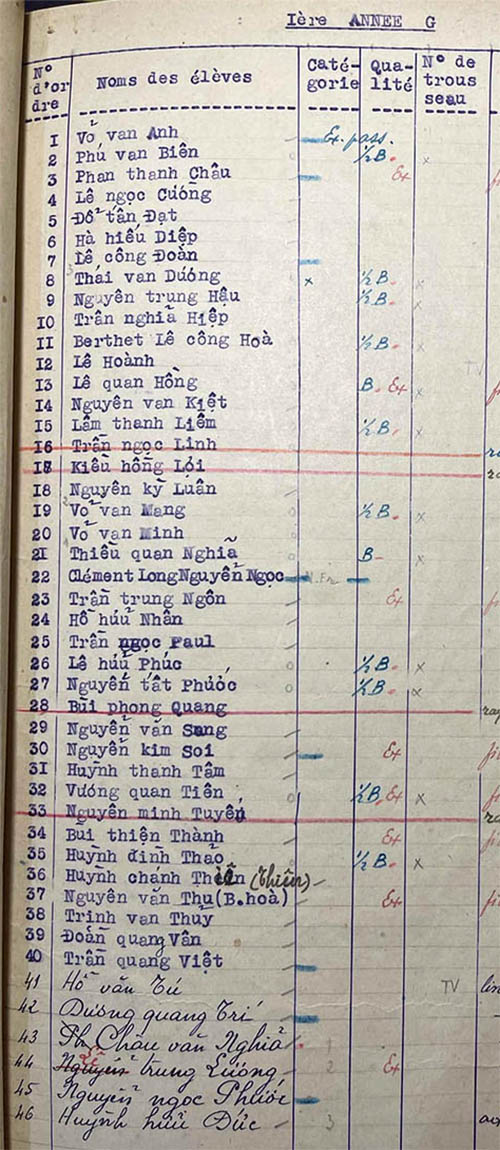 Ière ANNEE G
N° d'or dre Noms des élèves Caté-gorie Qua-lité N° de trous seau
1 Võ van Anh Ex. pass.
2 Phú van Biên ½B. x
3 Phan thanh Châu Ex
4 Lê ngọc Cương
5 Đỗ tấn Đạt
6 Hà hiếu Diệp
7 Lê công Đoàn
8 Thái van Dương x ½B. x
9 Nguyên trung Hậu ½B. x
10 Trân nghiã Hiệp
11 Berthet Lê công Hoà ½B. x
12 Lê Hoành
13 Lê quan Hồng B. Ex x TV
14 Nguyên van Kiệt
15 Lâm thanh Liêm ½B. x
16 Trần ngọc Linh
17 Kiều hồng Lợi
18 Nguyên kỳ Luân
19 Võ van Mang ½B. x
20 Võ van Minh
21 Thiều quan Nghiã B- x
22 Clément LongNguyễn Ngọc N.Fr
23 Trần trung Ngôn Ex
24 Hồ hữu Nhân
25 Trần ngọc Paul
26 Lê hữu Phúc ½B. x
27 Nguyễn tât Phước ½B. x
28 Bùi phong Quang
29 Nguyễn văn Sang
30 Nguyễn kim Soi Ex
31 Huỳnh thanh Tâm
32 Vương quan Tiên ½B, Ex x
33 Nguyên minh Tuyên
34 Bùi thiện Thành Ex
35 Huỳnh đình Thảo ½B. x
36 Huỳnh chánh Thiên (Thiên)
37 Nguyên văn Thụ(B.hoà) Ex
38 Trinh van Thủy
39 Đoàn quang Vân
40 Trần quang Việt
41 Hồ văn Tú TV
42 Dương quang Trí
43 Ph Châu văn Nghiã 1
44 Nguyễn Lê trung Lương 2 Ex
45 Nguyễn ngọc Phước
46 Huỳnh hữu Đức 3